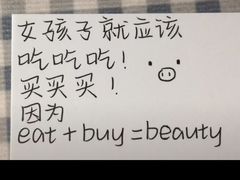 女孩子就应该
吃吃吃！
买买买！
因为
eat+buy=beauty